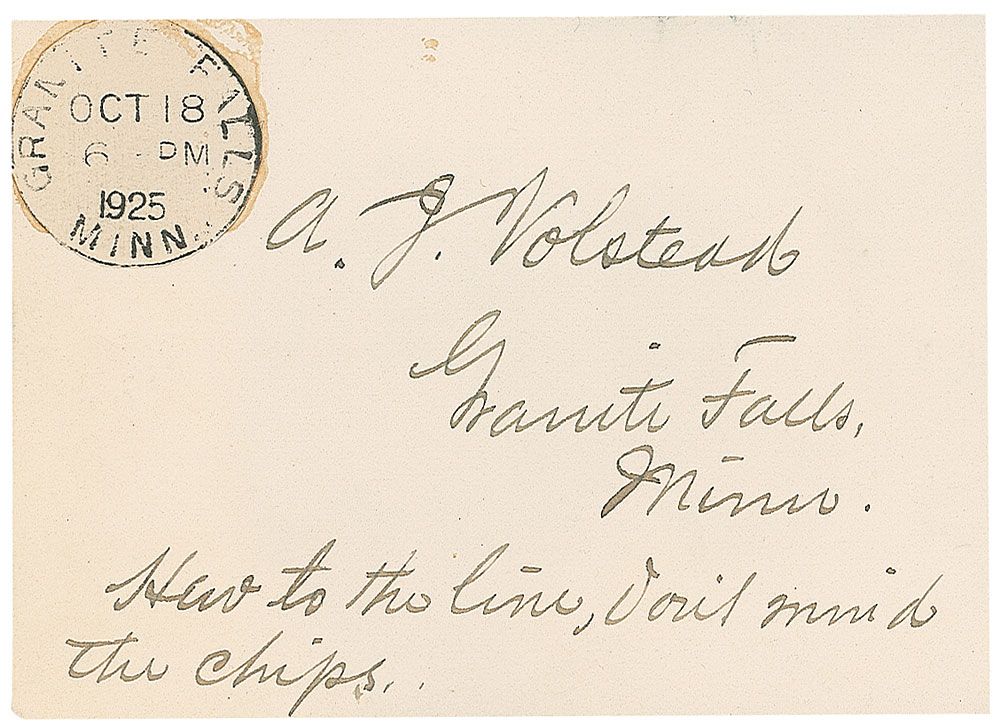 GRANITE FALLS
OCT 18
6 - PM
1925
MINN.
A. J. Volstead
Granite Falls,
Minn.
Hew to the line, Don't mind
the chips..